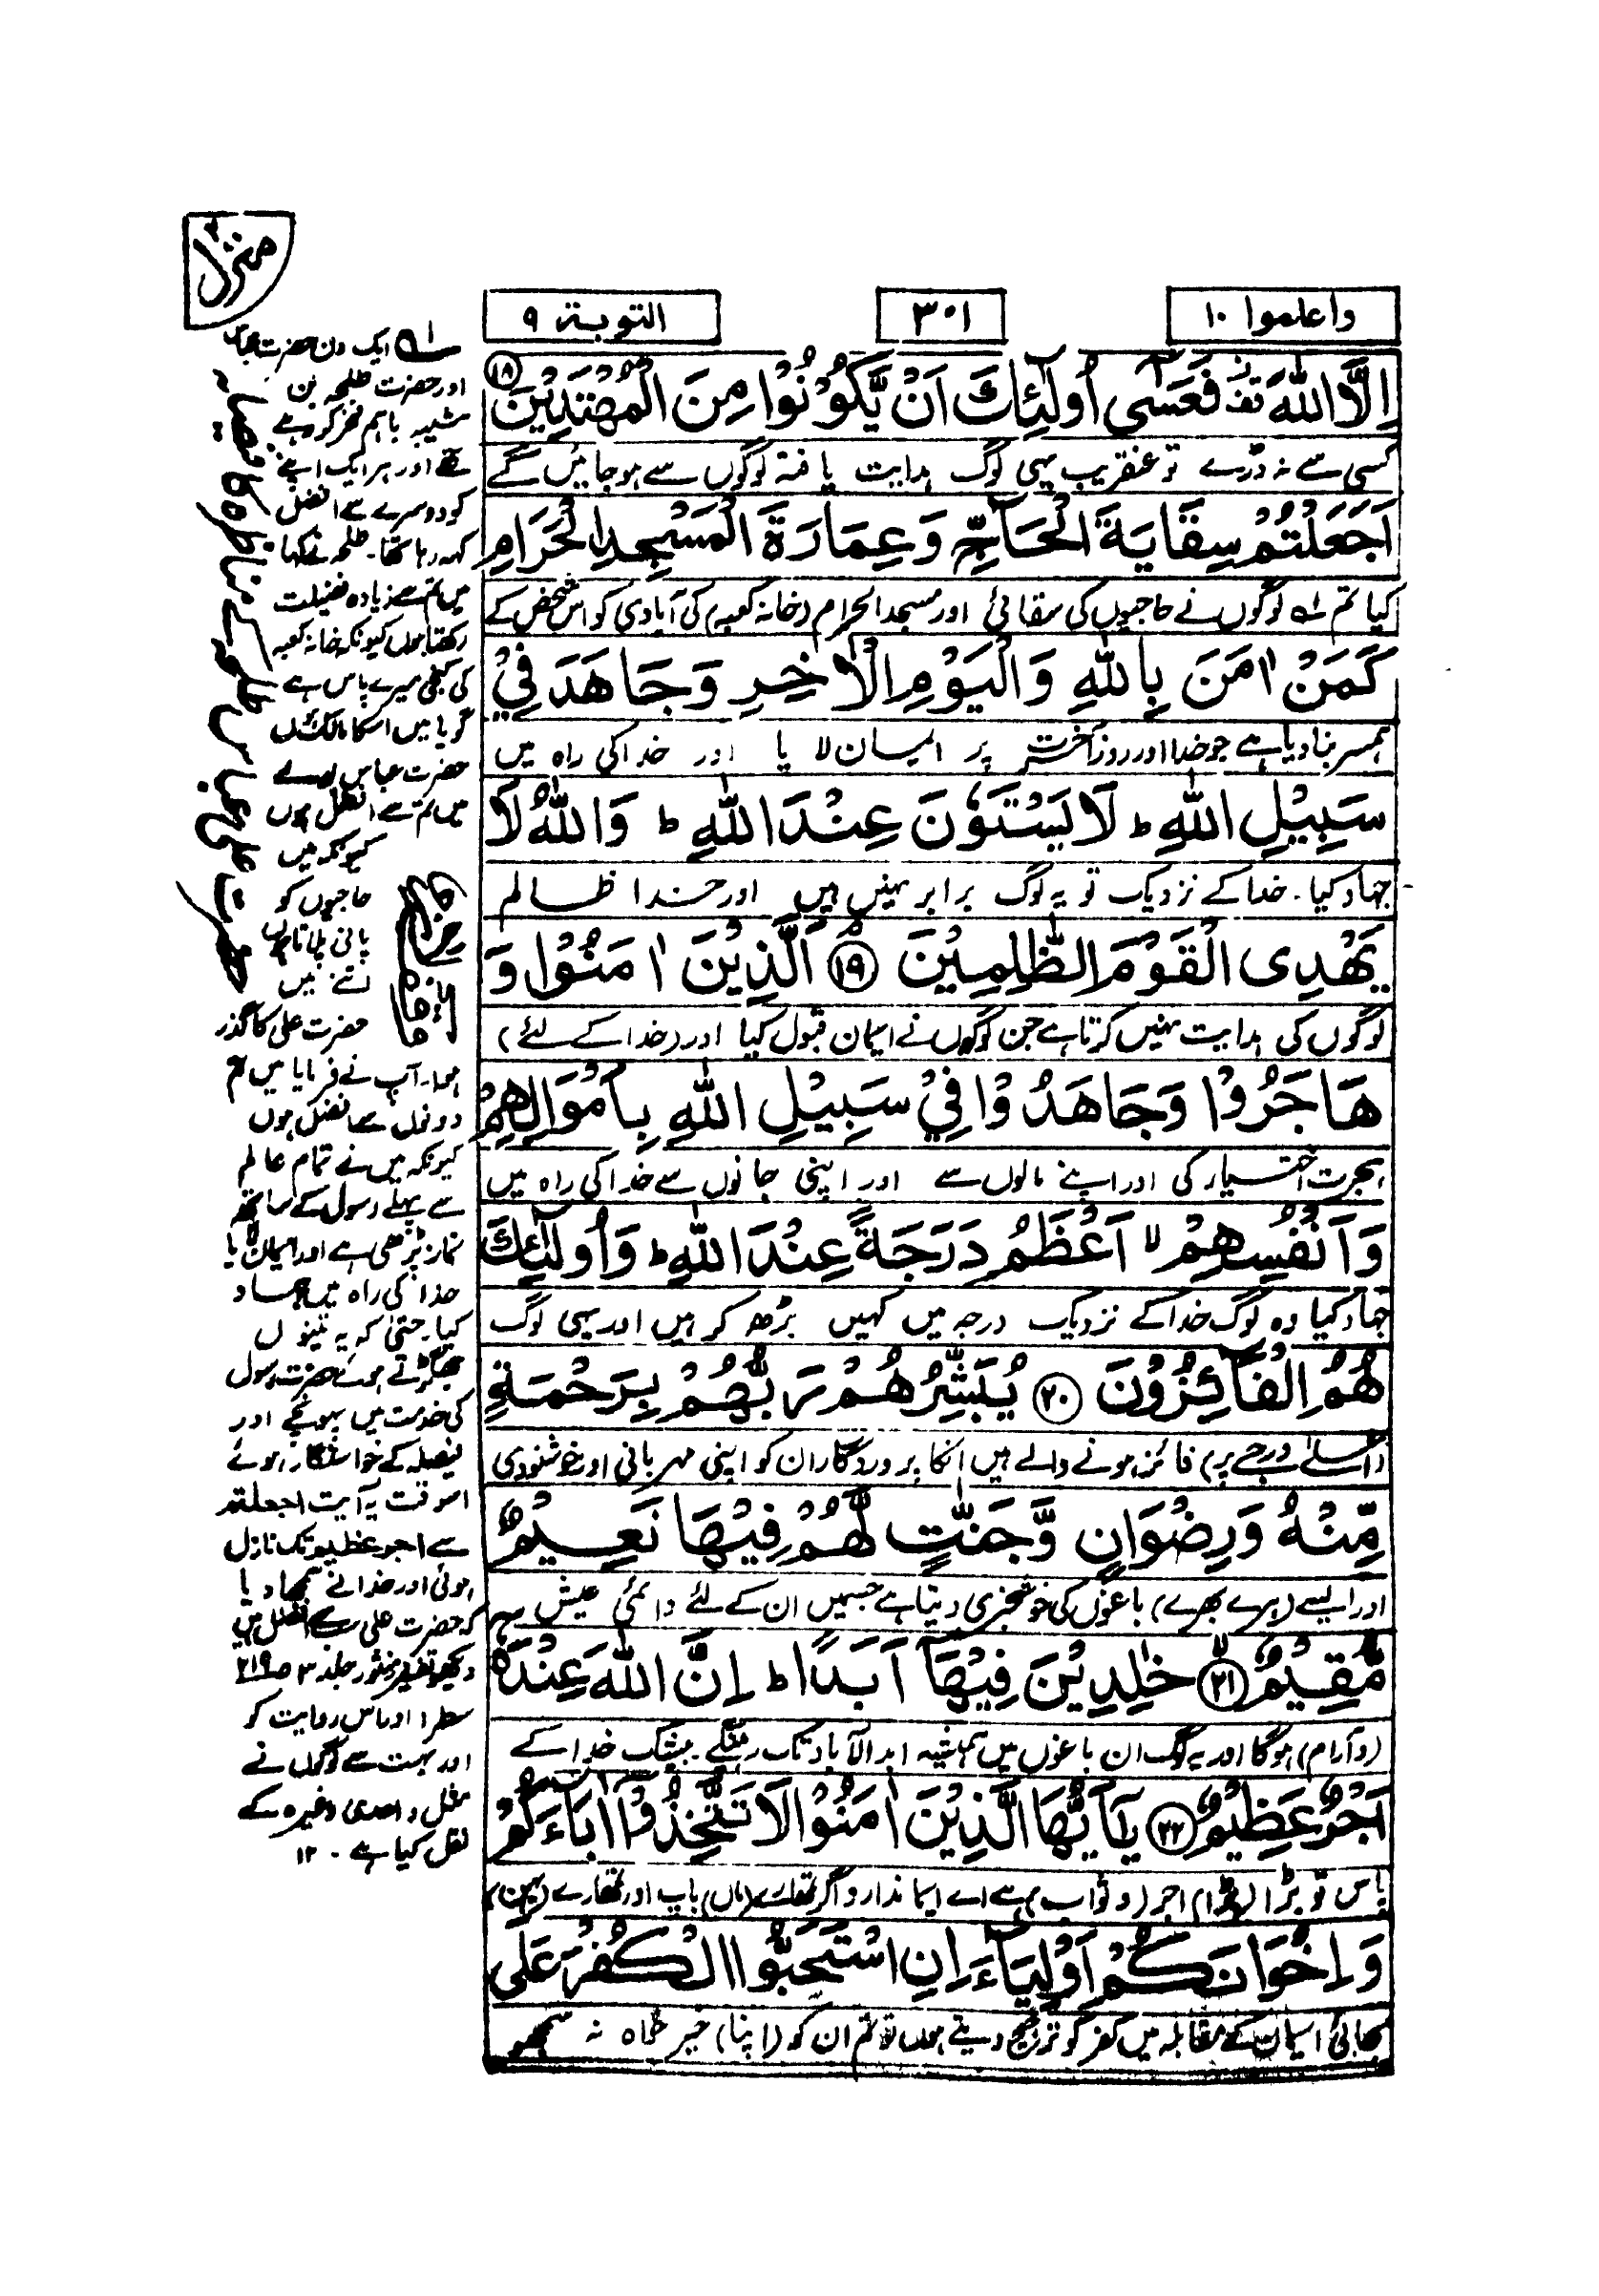 منزل ٢
واعلموا ١٠
٣٠١
التوبة ٩
اِلَّا اللّٰهَ قف فَعَسٰٓى اُولٰٓئِكَ اَنْ يَّكُوْنُوْا مِنَ الْمُهْتَدِيْنَ ١٨
کسی سے نہ ڈرے تو عنقریب یہی لوگ ہدایت یافتہ لوگوں سے ہو جائیں گے
اَجَعَلْتُمْ سِقَايَةَ الْحَآجِّ وَعِمَارَةَ الْمَسْجِدِ الْحَرَامِ
کیا تم لوگوں نے حاجیوں کی سقائی اور مسجد الحرام (خانہ کعبہ) کی آبادی کو اس شخص کے
كَمَنْ اٰمَنَ بِاللّٰهِ وَالْيَوْمِ الْاٰخِرِ وَجَاهَدَ فِيْ
ہمسر بنا دیا ہے جو خدا اور روز آخرت پر ایمان لایا اور خدا کی راہ میں
سَبِيْلِ اللّٰهِ ؕ لَا يَسْتَوٗنَ عِنْدَ اللّٰهِ ؕ وَاللّٰهُ لَا
جہاد کیا۔ خدا کے نزدیک تو یہ لوگ برابر نہیں ہیں اور خدا ظالم
يَهْدِى الْقَوْمَ الظّٰلِمِيْنَ ١٩ اَلَّذِيْنَ اٰمَنُوْا وَ
لوگوں کی ہدایت نہیں کرتا ہے جن لوگوں نے ایمان قبول کیا اور (خدا کے لئے)
هَاجَرُوْا وَجَاهَدُوْا فِيْ سَبِيْلِ اللّٰهِ بِاَمْوَالِهِمْ
ہجرت اختیار کی اور اپنے مالوں سے اور اپنی جانوں سے خدا کی راہ میں
وَاَنْفُسِهِمْ ۙ اَعْظَمُ دَرَجَةً عِنْدَ اللّٰهِ ؕ وَاُولٰٓئِكَ
جہاد کیا وہ لوگ خدا کے نزدیک درجہ میں کہیں بڑھ کر ہیں اور یہی لوگ
هُمُ الْفَآئِزُوْنَ ٢٠ يُبَشِّرُهُمْ رَبُّهُمْ بِرَحْمَةٍ
(اعلیٰ درجے پر) فائز ہونے والے ہیں انکا پروردگار ان کو اپنی مہربانی اور خوشنودی
مِّنْهُ وَرِضْوَانٍ وَّجَنّٰتٍ لَّهُمْ فِيْهَا نَعِيْمٌ
اور ایسے (ہرے بھرے) باغوں کی خوشخبری دیتا ہے جسمیں ان کے لئے دائمی عیش
مُّقِيْمٌ ٢١ خٰلِدِيْنَ فِيْهَآ اَبَدًا ؕ اِنَّ اللّٰهَ عِنْدَهٗٓ
(و آرام) ہوگا اور یہ لوگ ان باغوں میں ہمیشہ ابدالآباد تک رہینگے۔ بیشک خدا کے
اَجْرٌ عَظِيْمٌ ٢٢ يٰٓاَيُّهَا الَّذِيْنَ اٰمَنُوْا لَا تَتَّخِذُوْٓا اٰبَآءَكُمْ
پاس تو بڑا بڑا اجر (و ثواب) ہے اے ایماندارو اگر تمھارے (ماں) باپ اور تمھارے (بہن)
وَاِخْوَانَكُمْ اَوْلِيَآءَ اِنِ اسْتَحَبُّوا الْكُفْرَ عَلَى
بھائی ایمان کے مقابلہ میں کفر کو ترجیح دیتے ہوں تو تم ان کو (اپنا) خیر خواہ نہ سمجھو
ایک دن حضرت عباس
اور حضرت طلحہ بن
شیبہ باہم فخر کر رہے
تھے اور ہر ایک اپنے
کو دوسرے سے افضل
کہہ رہا تھا۔ طلحہ نے کہا
میں تم سے زیادہ فضیلت
رکھتا ہوں کیونکہ خانہ کعبہ
کی کنجی میرے پاس ہے
گویا میں اسکا مالک ہوں
حضرت عباس بولے
میں تم سے افضل ہوں
کیونکہ میں
حاجیوں کو
پانی پلاتا ہوں
اتنے میں
حضرت علی کا گذر
ہوا۔ آپ نے فرمایا میں تم
دونوں سے افضل ہوں
کیونکہ میں نے تمام عالم
سے پہلے رسول کے ساتھ
نماز پڑھی ہے اور ایمان لایا
خدا کی راہ میں جہاد
کیا۔ حتیٰ کہ یہ تینوں
جھگڑتے ہوئے حضرت رسول
کی خدمت میں پہونچے اور
فیصلہ کے خواستگار ہوئے
اسوقت یہ آیت اجعلتم
سے اجر عظیم تک نازل
ہوئی اور خدا نے سمجھا دیا
کہ حضرت علی سب سے افضل ہیں
دیکھو تفسیر در منثور جلد ٣ صـ٢١٩
سطر ١ اور اس روایت کو
اور بہت سے لوگوں نے
مثل واحدی وغیرہ کے
نقل کیا ہے۔ ١٢